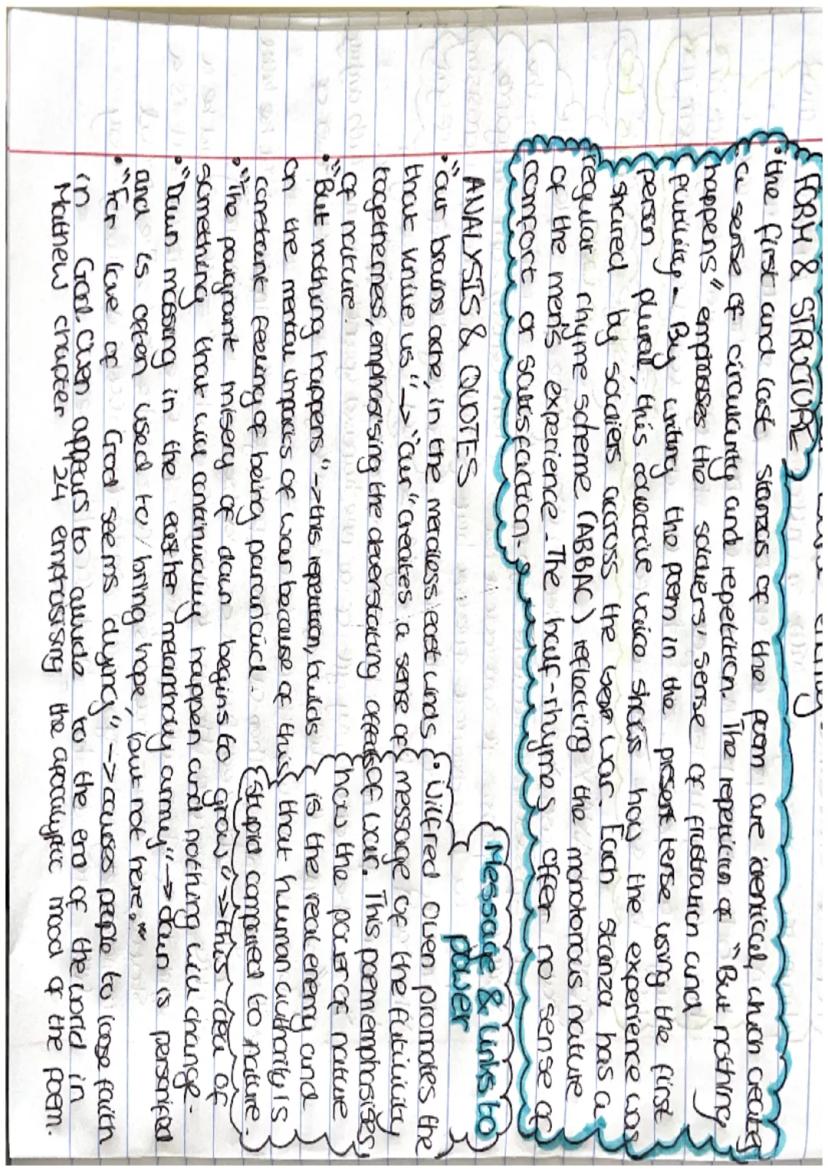 FORM & STRUCTURE
• the first and last stanzas of the poem are identical, which creates
a sense of circularity and repetition. The repetition of "But nothing
happens" emphasises the soldiers' sense of frustration and
futility - By writing the poem in the present tense using the first
person plural, this collective voice shows how the experience was
shared by soldiers across the war. Each stanza has a
regular rhyme scheme (ABBAC) reflecting the monotonous nature
of the men's experience. The half-rhymes offer no sense of
comfort or satisfaction.
ANALYSIS & QUOTES
• "our brains ache, in the merciless east winds
that knive us" -> "our" creates a sense of
togetherness, emphasising the deverstating effects of war. This poem emphasises,
of nature.
• "But nothing happens" -> this repetition, builds
on the mental impacts of war because of this
constant feeling of being paranoid.
• "The poignant misery of dawn begins to grow" -> this idea of
something that will continuously happen and nothing will change.
• "Dawn massing in the east her melancholy army" -> dawn is personified
and is often used to bring hope, but not here."
• "For love of God seems dying" -> causes people to loose faith
in God. Owen appears to allude to the end of the world in
Mathew chapter 24 emphasising the apocalyptic mood of the poem.
Message & Links to
power
• Wilfred Owen promotes the
message of the futility
how the power of nature
is the real enemy and
that human authority is
stupid compared to nature.